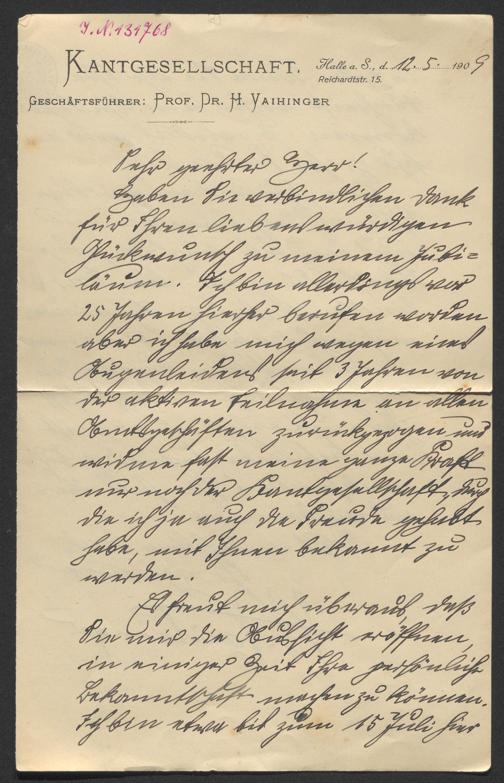 I. N. 131768
KANTGESELLSCHAFT.
Halle a. S., d. 12. 5. 1909
Reichardtstr. 15.
GESCHÄFTSFÜHRER: PROF. DR. H. VAIHINGER
Sehr geehrter Herr!
Haben Sie verbindlichen Dank
für Ihren liebenswürdigen
Glückwunsch zu meinem Jubi=
läum. Ich bin allerdings vor
25 Jahren hierher berufen worden
aber ich habe mich wegen eines
Augenleidens seit 3 Jahren von
der aktiven Teilnahme an allen
Amtsgeschäften zurückgezogen und
widme fast meine ganze Kraft
nur noch der Kantgesellschaft, durch
die ich ja auch die Freude gehabt
habe, mit Ihnen bekannt zu
werden.
Es freut mich überaus, daß
Sie mir die Aussicht eröffnen,
in einiger Zeit Ihre persönliche
Bekanntschaft machen zu können.
Ich bin etwa bis zum 15 Juli hier